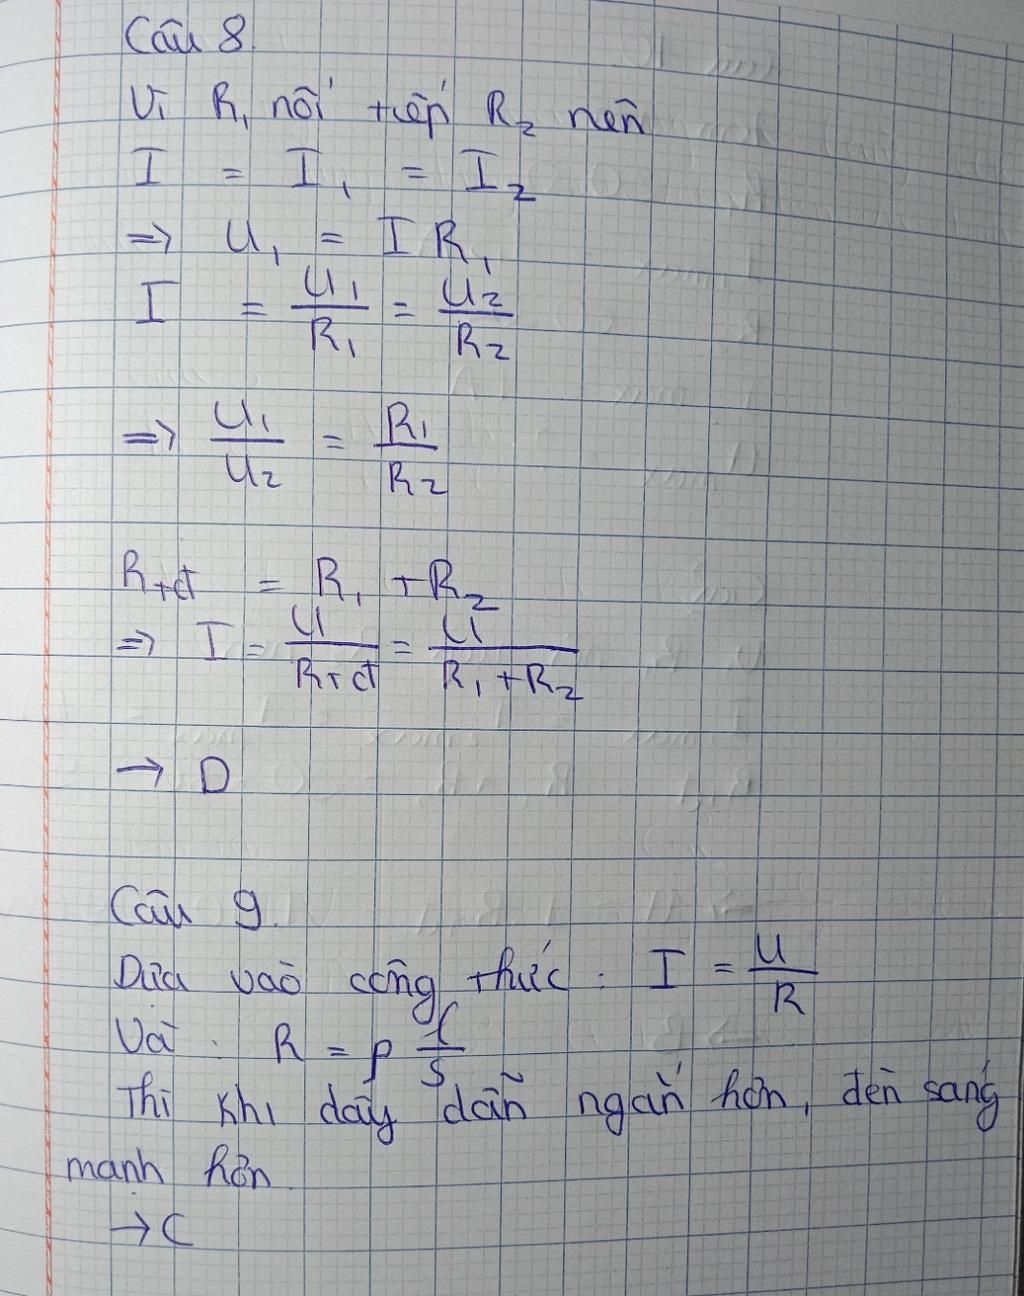 Câu 8
Vì R₁ nối tiếp R₂ nên
I = I₁ = I₂
=> U₁ = I R₁
I = U₁/R₁ = U₂/R₂
=> U₁/U₂ = R₁/R₂
Rtđ = R₁ + R₂
=> I = U/Rtđ = U/(R₁ + R₂)
→ D
Câu 9.
Dựa vào công thức : I = U/R
Và . R = ρ l/S
Thì khi dây dẫn ngắn hơn, đèn sáng
mạnh hơn.
→ C